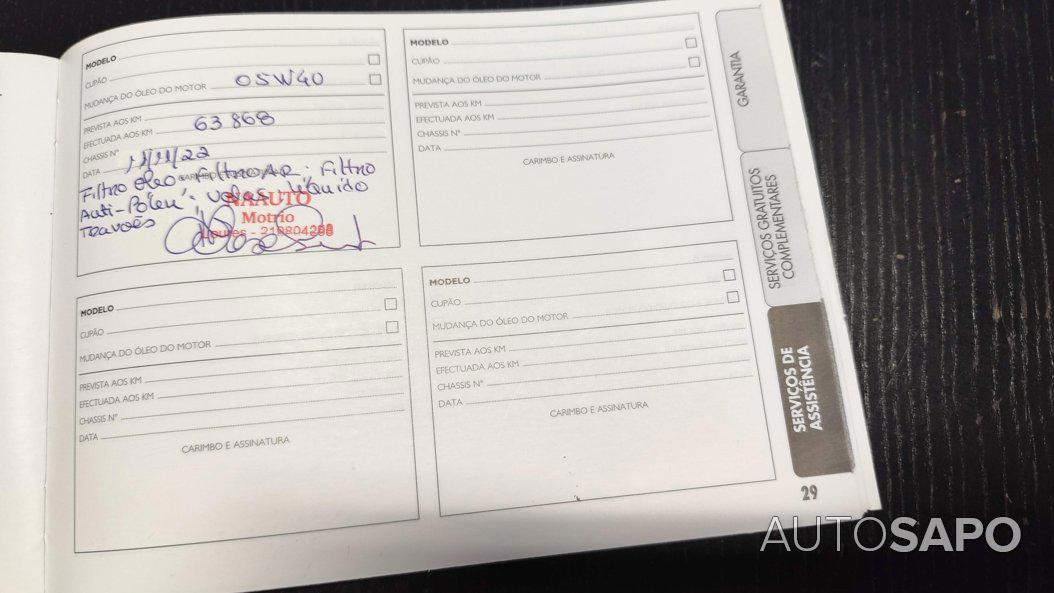 MODELO
CUPÃO
MUDANÇA DO ÓLEO DO MOTOR O5W40
PREVISTA AOS KM
EFECTUADA AOS KM 63868
CHASSIS Nº
DATA 11/11/22
CARIMBO E ASSINATURA
Filtro óleo; Filtro AR; Filtro
Anti-Pólen; velas; líquido
Travões
NAAUTO
Motrio
Loures - 219804298
MODELO
CUPÃO
MUDANÇA DO ÓLEO DO MOTOR
PREVISTA AOS KM
EFECTUADA AOS KM
CHASSIS Nº
DATA
CARIMBO E ASSINATURA
MODELO
CUPÃO
MUDANÇA DO ÓLEO DO MOTOR
PREVISTA AOS KM
EFECTUADA AOS KM
CHASSIS Nº
DATA
CARIMBO E ASSINATURA
MODELO
CUPÃO
MUDANÇA DO ÓLEO DO MOTOR
PREVISTA AOS KM
EFECTUADA AOS KM
CHASSIS Nº
DATA
CARIMBO E ASSINATURA
GARANTIA
SERVIÇOS GRATUITOS
COMPLEMENTARES
SERVIÇOS DE
ASSISTÊNCIA
29
AUTOSAPO